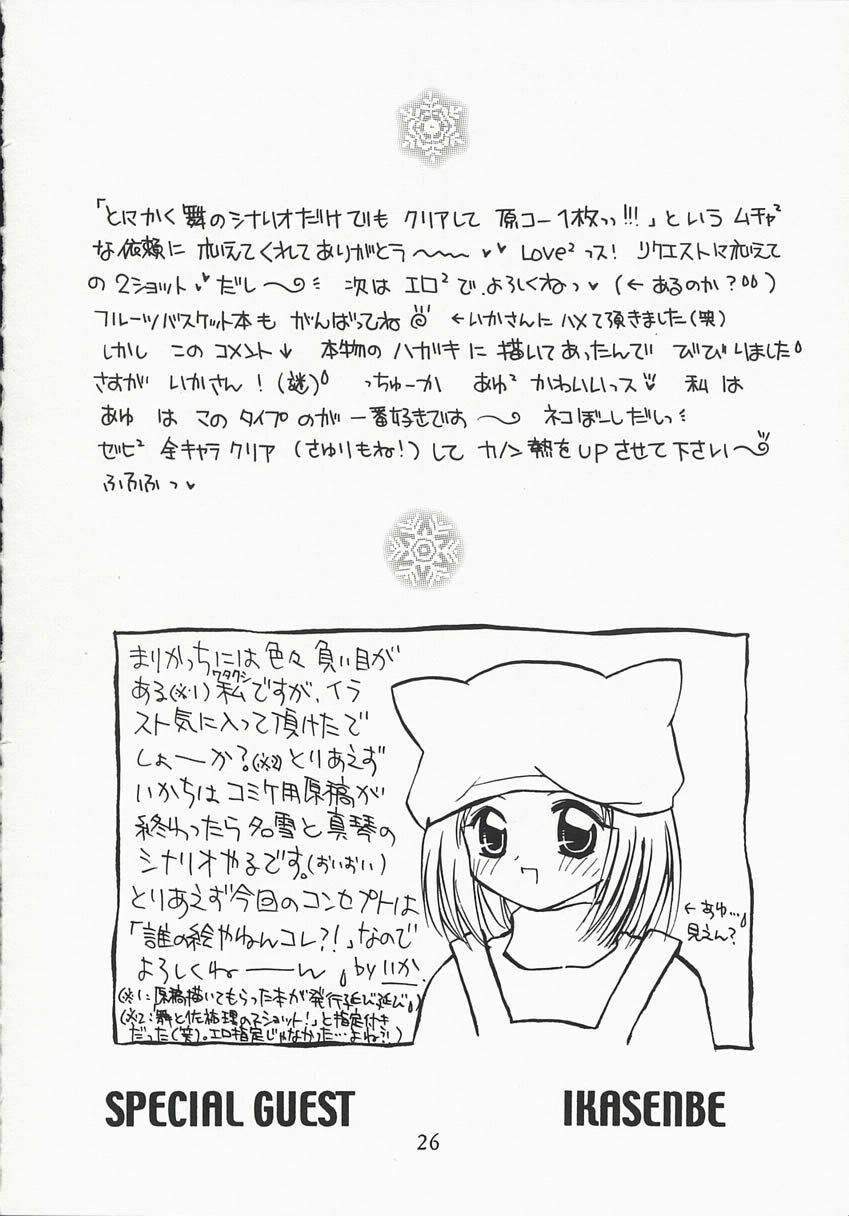 「とにかく舞のシナリオだけでも クリアして 原コー1枚っっ!!!」という ムチャ²
な依頼に 応えてくれてありがとう〜〜 ♥♥ Love²っス! リクエストに応えて
の2ショット♥だし〜 次は エロ²で、よろしくねっ♥ (←あるのか?)
フルーツバスケット本も がんばってね ←いかさんにハメて頂きました(笑)
しかし このコメント↓ 本物のハガキに描いてあったんで びびりました
さすが いかさん!(謎) っちゅーか あゆ² かわいいっス♥ 私は
あゆ は このタイプのが一番好きでお〜 ネコぼーしだしっ
ゼヒ² 全キャラクリア (さゆりもね!)して カノン熱をUPさせて下さい〜
ふふふっ♥
まりかっちには色々負い目が
ある(※1)私ワタクシですが、イラ
スト気に入って頂けたで
しょーか?(※2)とりあえず
いかちはコミケ用原稿が
終わったら名雪と真琴の
シナリオやるです。(おいおい)
とりあえず今回のコンセプトは
「誰の絵やねんコレ?!」なので
よろしくねーーん by いか
←あゆ…
見えん?
(※1:原稿描いてもらった本が発行延び延び)
(※2:「舞と佐祐理の2ショット!」と指定付き
だった(笑)。エロ指定じゃなかった…よね?!)
SPECIAL GUEST IKASENBE
26